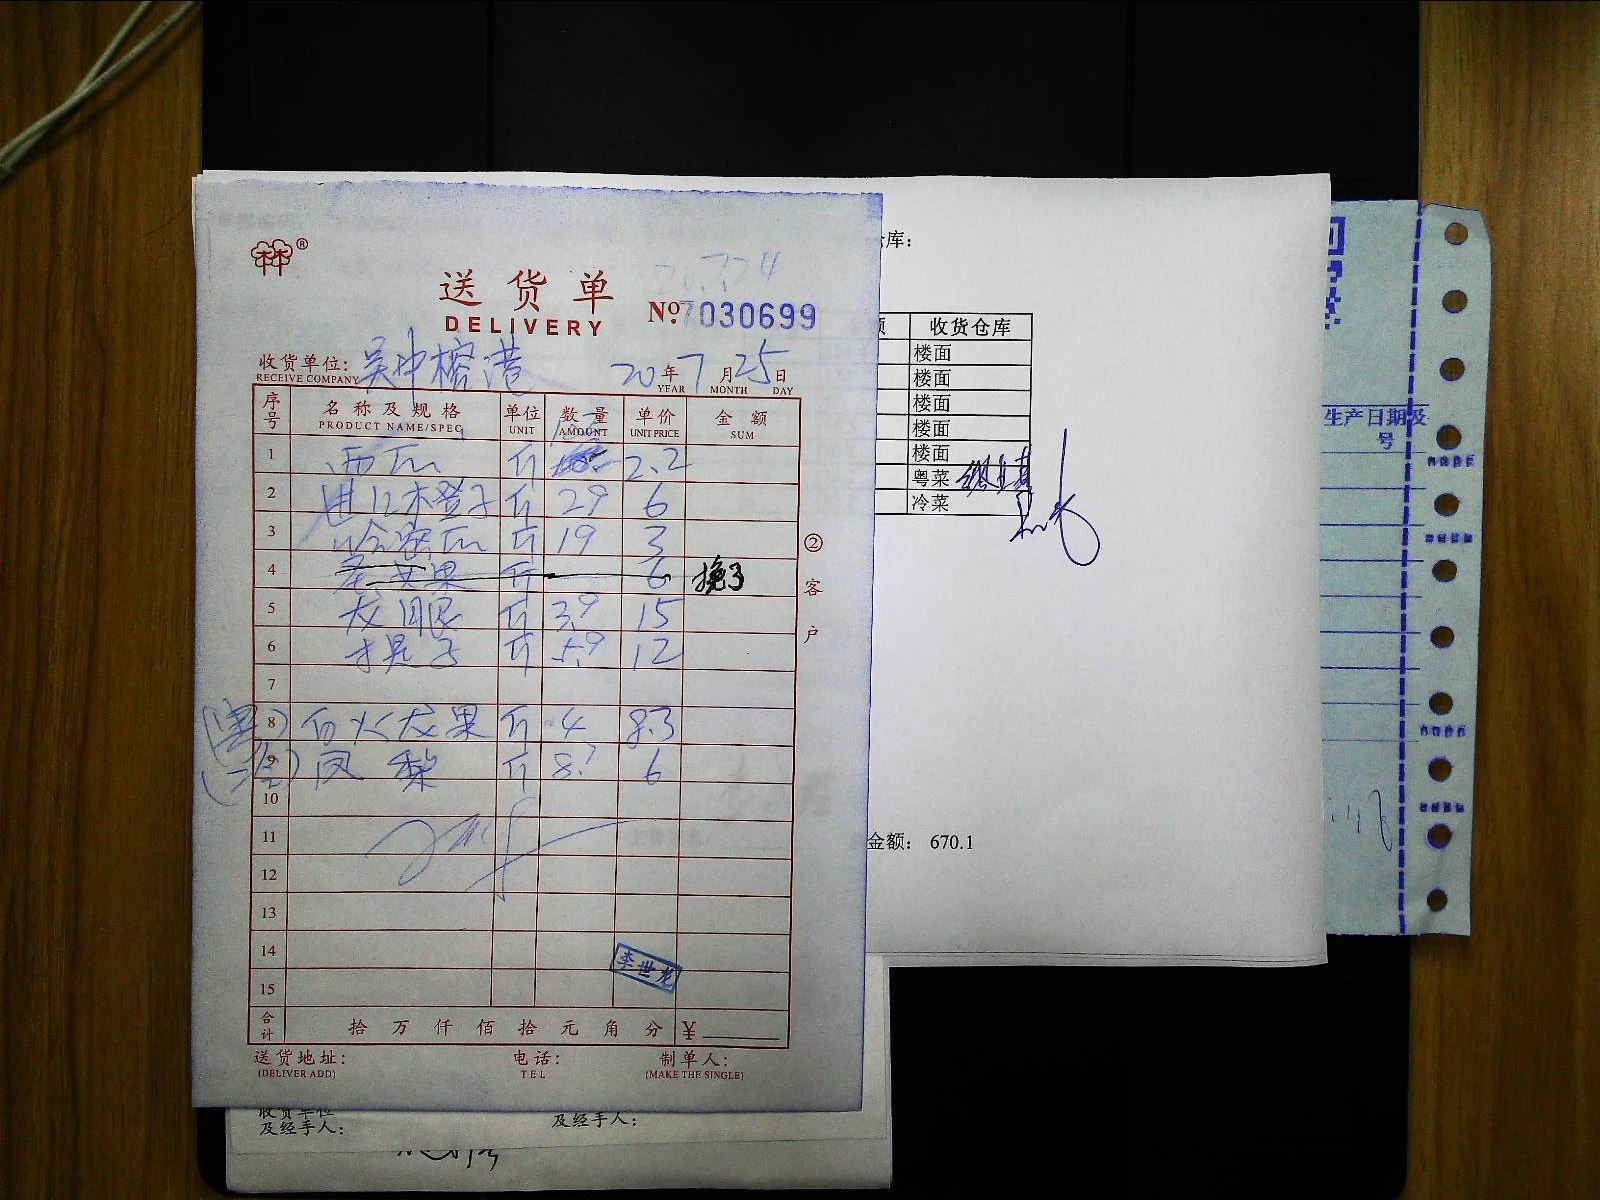 林®
送货单
DELIVERY
No. 7030699
20.7.24
收货单位: 吴中榕港 20年7月25日
RECEIVE COMPANY YEAR MONTH DAY
序号 名称及规格 单位 数量 单价 金额
PRODUCT NAME/SPEC UNIT AMOUNT UNIT PRICE SUM
1 西瓜 斤 2.2
2 进口木登子 斤 29 6
3 哈密瓜 斤 19 3
4 圣女果 斤 6
5 龙眼 斤 3.9 15
6 提子 斤 5.9 12
7
8 白火龙果 斤 4 8.3
9 凤梨 斤 8.7 6
10
11
12
13
14
15
李世龙
合计 拾万仟佰拾元角分 ¥
送货地址: 电话: 制单人:
(DELIVER ADD) TEL (MAKE THE SINGLE)
②客户
库:
额 收货仓库
楼面
楼面
楼面
楼面
楼面
粤菜
冷菜
金额: 670.1
生产日期及
号
收货单位
及经手人: 及经手人: